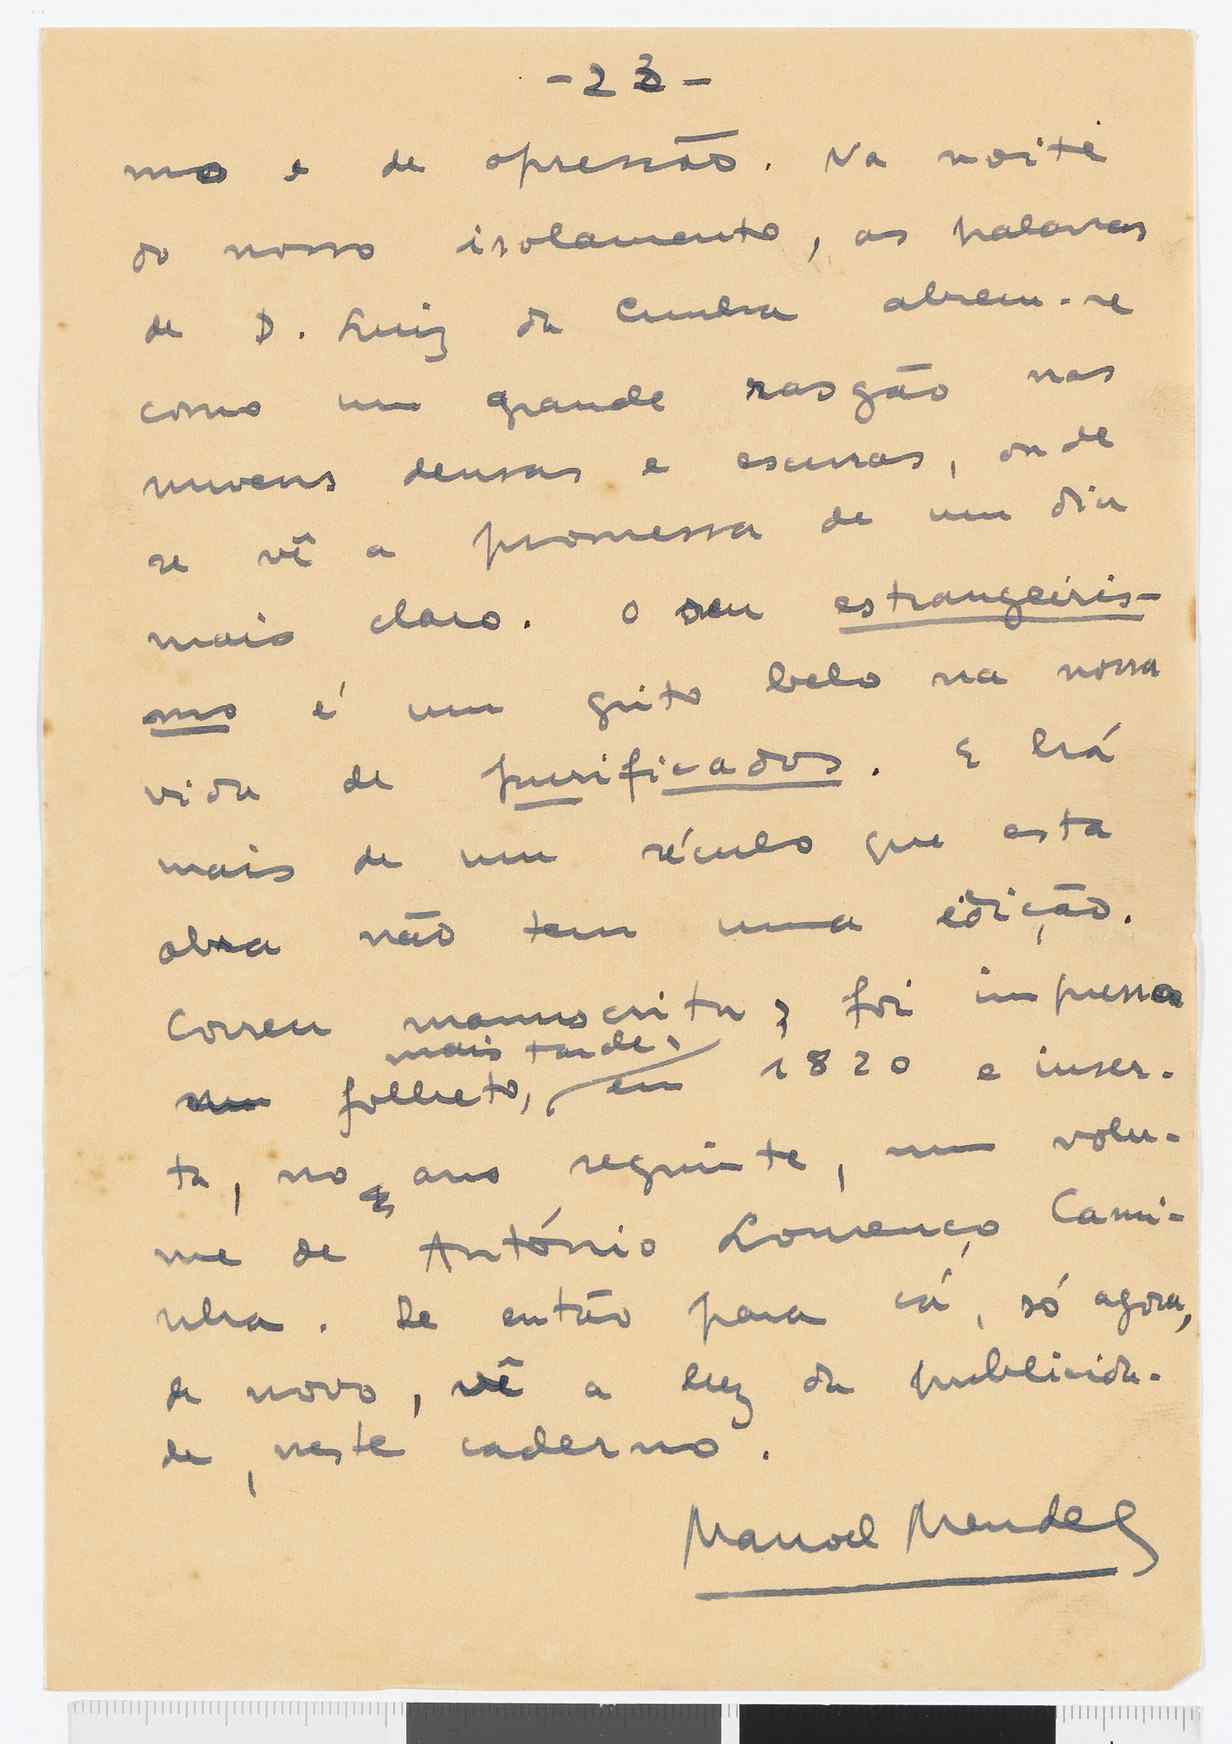 - 23 -
mo e de opressão. Na noite
do nosso isolamento, as palavras
de D. Luiz da Cunha abrem-se
como um grande rasgão nas
nuvens densas e escuras, onde
se vê a promessa de um dia
mais claro. O seu estrangeiris-
mo é um grito belo na nossa
vida de purificados. E há
mais de um século que esta
obra não tem uma edição.
Correu manuscrita; foi impressa
mais tarde,
num folheto, em 1820 e inser-
ta, no ano seguinte, num volu-
me de António Lourenço Cami-
nha. De então para cá, só agora,
de novo, vê a luz da publicida-
de, neste caderno.
Manoel Mendes